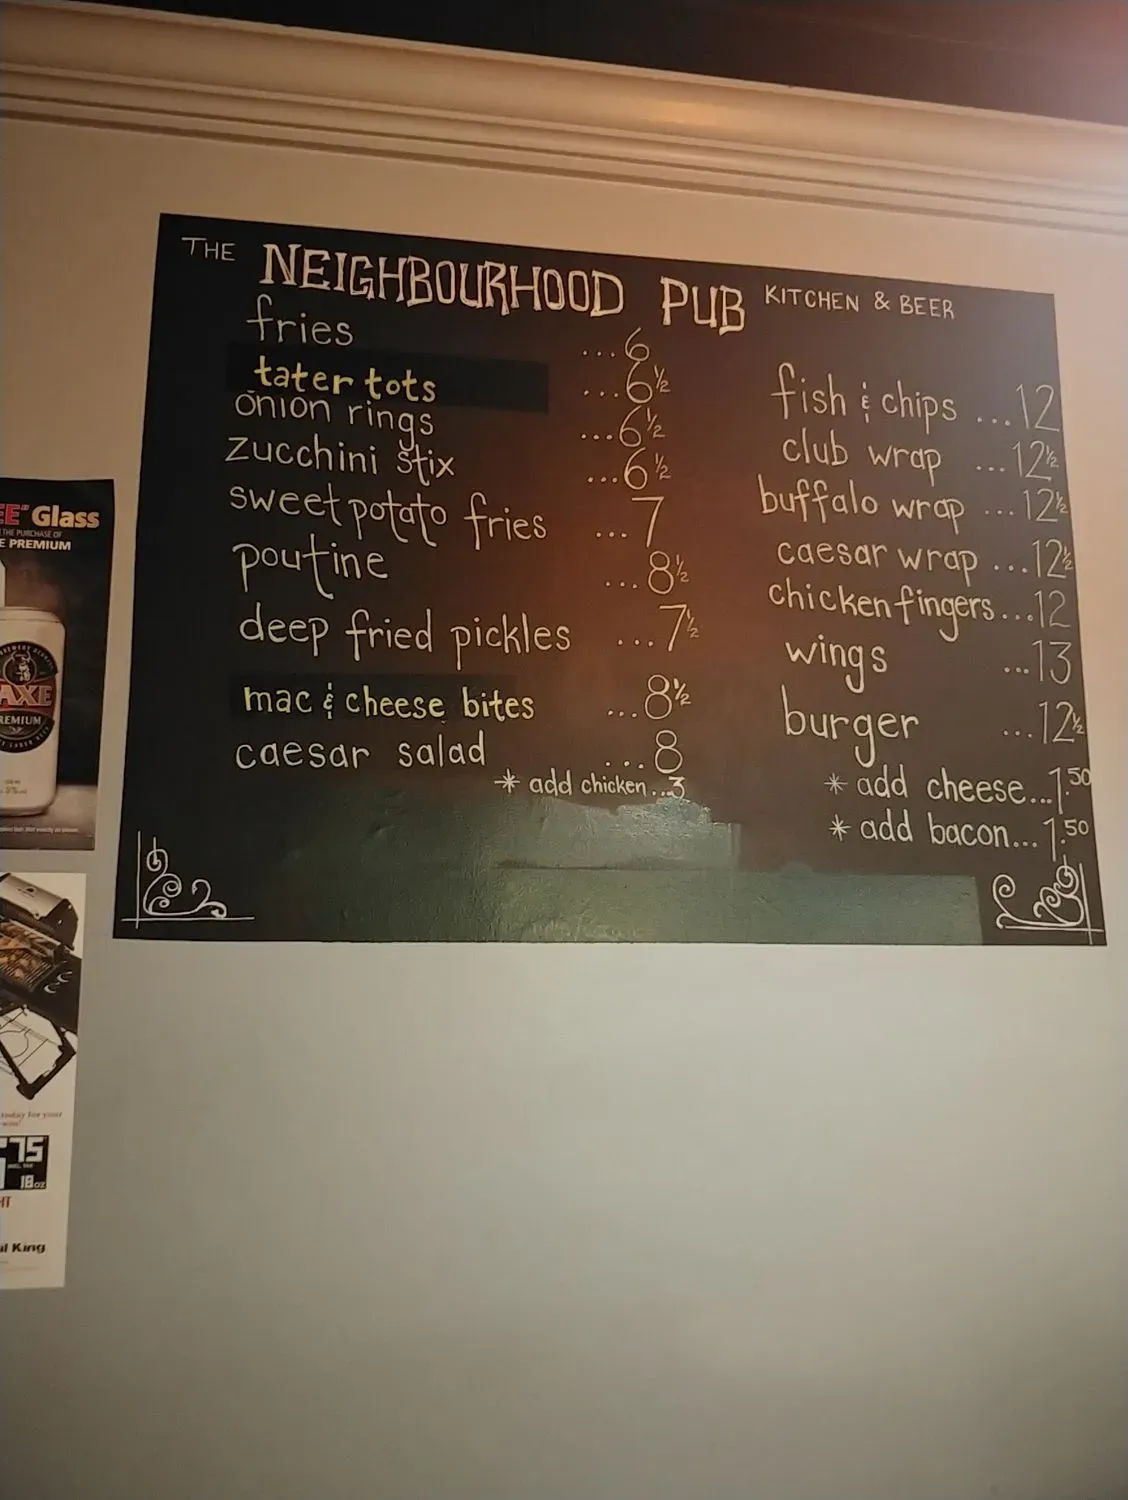 THE NEIGHBOURHOOD PUB KITCHEN & BEER
fries ...6
tater tots ...6½
onion rings ...6½
zucchini stix ...6½
sweet potato fries ...7
poutine ...8½
deep fried pickles ...7½
mac & cheese bites ...8½
caesar salad ...8
* add chicken...3
fish & chips ...12
club wrap ...12½
buffalo wrap ...12½
caesar wrap ...12½
chicken fingers...12
wings ...13
burger ...12½
* add cheese...1.50
* add bacon...1.50
Glass
THE PURCHASE OF
PREMIUM
AXE
PREMIUM
today for your
75
18oz
King